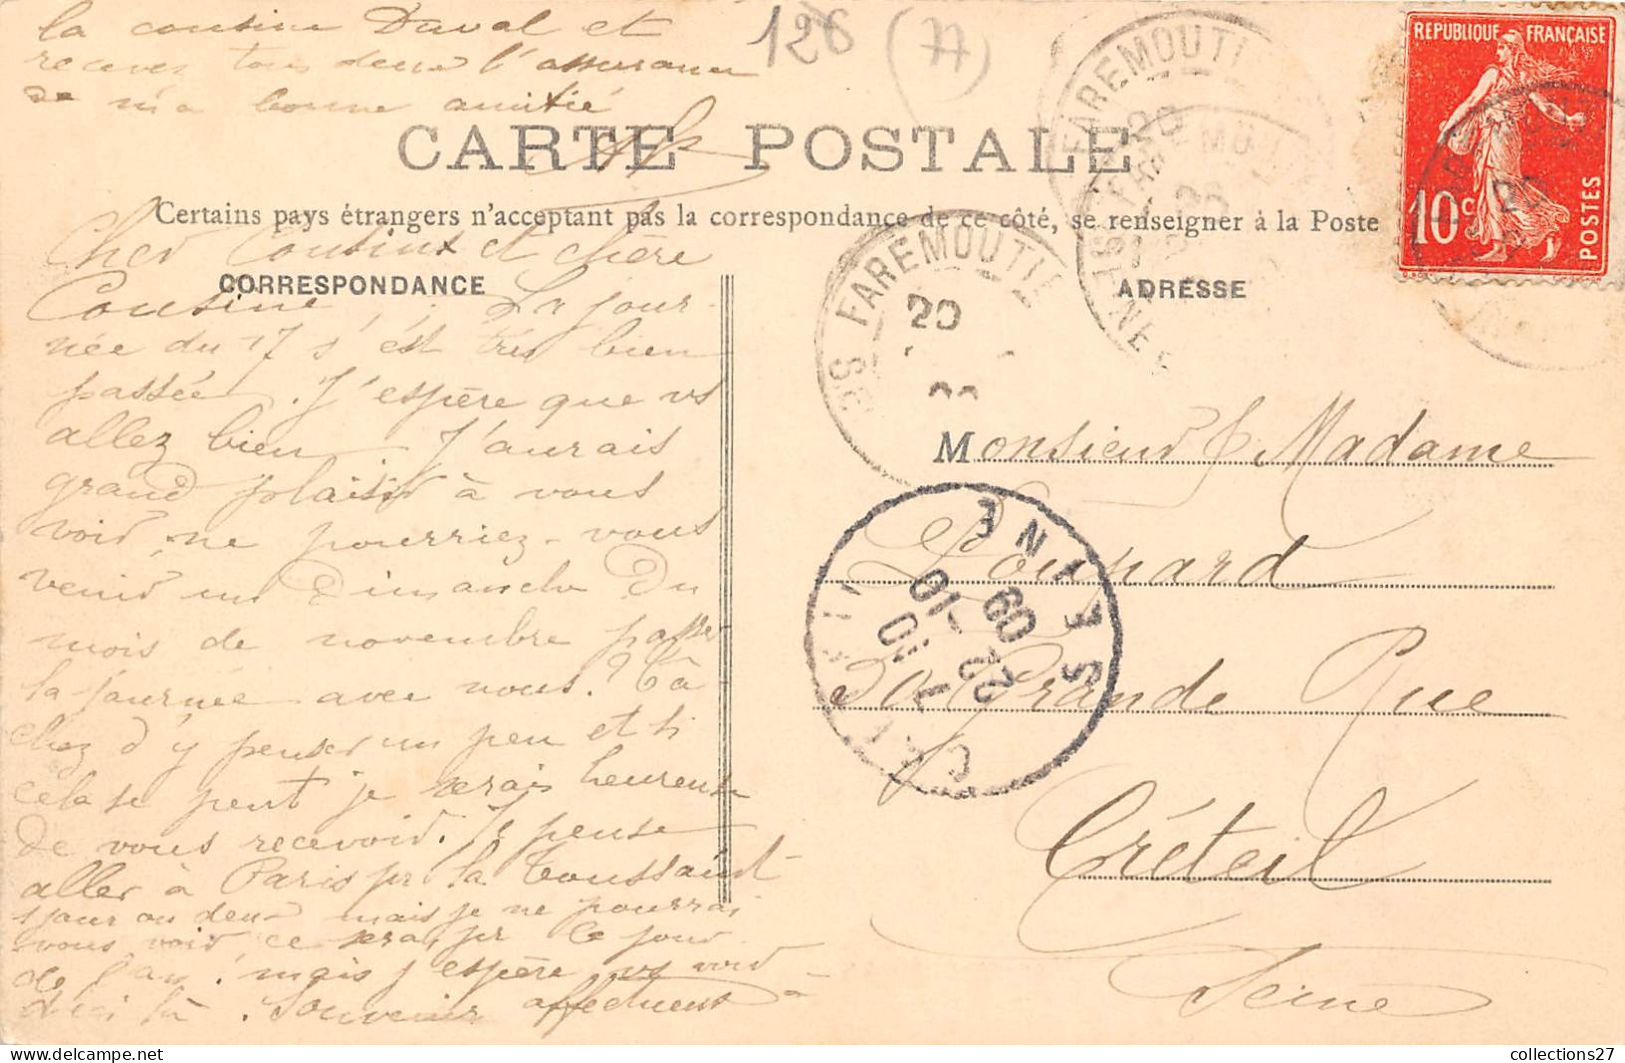 la cousine Duval et
recevez tous deux l'assurance
de m'a bonne amitié
126 (77)
CARTE POSTALE
Certains pays étrangers n'acceptant pas la correspondance de ce côté, se renseigner à la Poste
CORRESPONDANCE
ADRESSE
Cher Cousin et chère
Cousine, La jour-
née du 17 s'est très bien
passée. J'espère que vs
allez bien. J'aurais
grand plaisir à vous
voir, ne pourriez-vous
venir un Dimanche du
mois de novembre passer
la journée avec nous? Tâ-
chez d'y penser un peu et si
cela se peut je serais heureuse
de vous recevoir. Je pense
aller à Paris pr la Toussaint
1 jour ou deux mais je ne pourrai
vous voir ce sera pr le jour
de l'an! mais j'espère vs voir
d'ici là. Souvenir affectueux
RÉPUBLIQUE FRANÇAISE
10c
POSTES
FAREMOUTIERS
20
FAREMOUTIERS
20
CRÉTEIL
7 30
22 -10
09
SEINE
Monsieur & Madame
Poupard
Grande Rue
Créteil
Seine
collections27